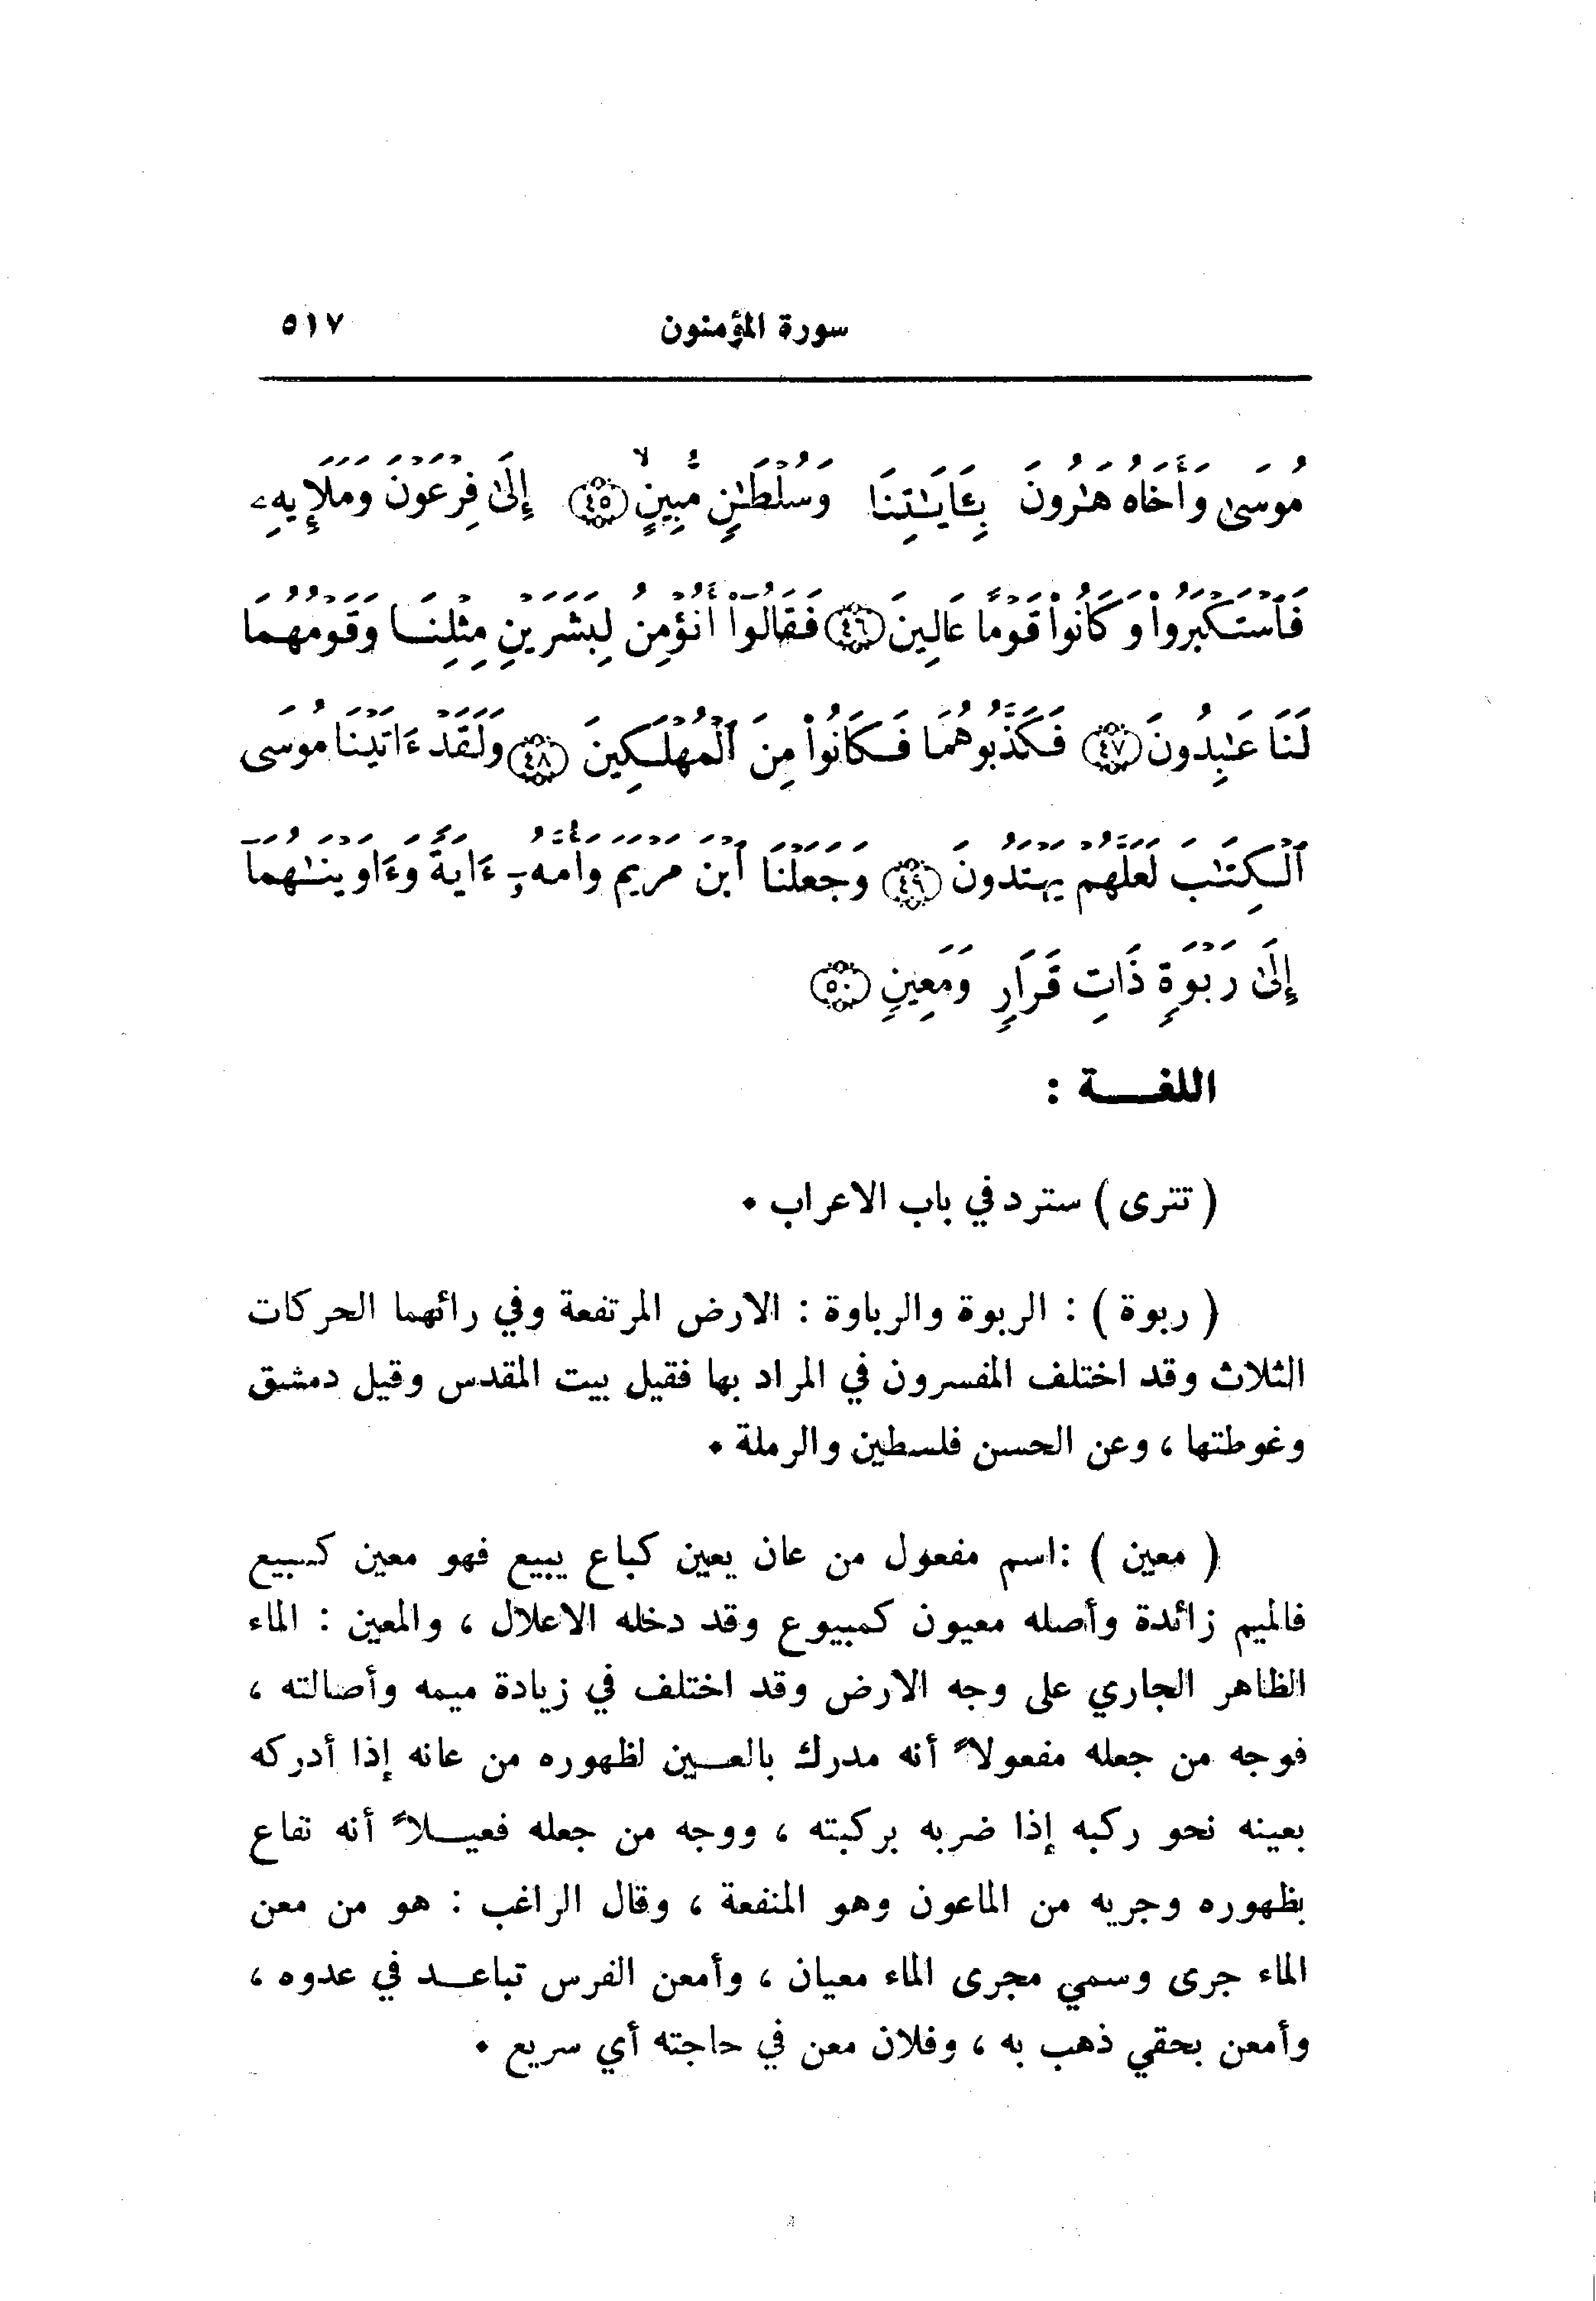 سورة المؤمنون ٥١٧
مُوسَىٰ وَأَخَاهُ هَٰرُونَ بِـَٔايَٰتِنَا وَسُلْطَٰنٍ مُّبِينٍ ﴿٤٥﴾ إِلَىٰ فِرْعَوْنَ وَمَلَإِيْهِۦ
فَٱسْتَكْبَرُوا۟ وَكَانُوا۟ قَوْمًا عَالِينَ ﴿٤٦﴾ فَقَالُوٓا۟ أَنُؤْمِنُ لِبَشَرَيْنِ مِثْلِنَا وَقَوْمُهُمَا
لَنَا عَٰبِدُونَ ﴿٤٧﴾ فَكَذَّبُوهُمَا فَكَانُوا۟ مِنَ ٱلْمُهْلَكِينَ ﴿٤٨﴾ وَلَقَدْ ءَاتَيْنَا مُوسَى
ٱلْكِتَٰبَ لَعَلَّهُمْ يَهْتَدُونَ ﴿٤٩﴾ وَجَعَلْنَا ٱبْنَ مَرْيَمَ وَأُمَّهُۥٓ ءَايَةً وَءَاوَيْنَٰهُمَآ
إِلَىٰ رَبْوَةٍ ذَاتِ قَرَارٍ وَمَعِينٍ ﴿٥٠﴾
اللغـــة :
( تترى ) سترد في باب الاعراب ٠
( ربوة ) : الربوة والرباوة : الارض المرتفعة وفي رائهما الحركات
الثلاث وقد اختلف المفسرون في المراد بها فقيل بيت المقدس وقيل دمشق
وغوطتها ، وعن الحسن فلسطين والرملة ٠
( معين ) :اسم مفعول من عان يعين كباع يبيع فهو معين كمبيع
فالميم زائدة وأصله معيون كمبيوع وقد دخله الاعلال ، والمعين : الماء
الظاهر الجاري على وجه الارض وقد اختلف في زيادة ميمه وأصالته ،
فوجه من جعله مفعولاً أنه مدرك بالعـــين لظهوره من عانه إذا أدركه
بعينه نحو ركبه إذا ضربه بركبته ، ووجه من جعله فعيـــلاً أنه نفاع
بظهوره وجريه من الماعون وهو المنفعة ، وقال الراغب : هو من معن
الماء جرى وسمي مجرى الماء معيان ، وأمعن الفرس تباعـــد في عدوه ،
وأمعن بحقي ذهب به ، وفلان معن في حاجته أي سريع ٠